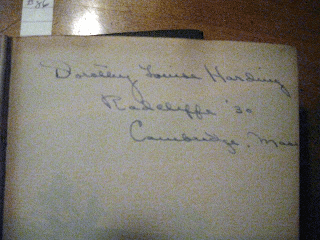 Dorothy Louise Harding
Radcliffe '30
Cambridge, Mass